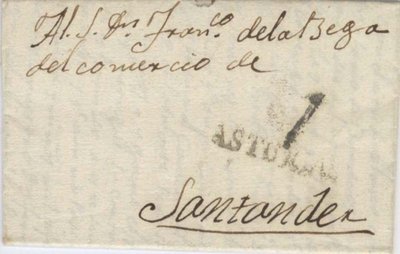 Al S. Dn Franco. de la Bega
del comercio de
1
ASTURIAS
Santander